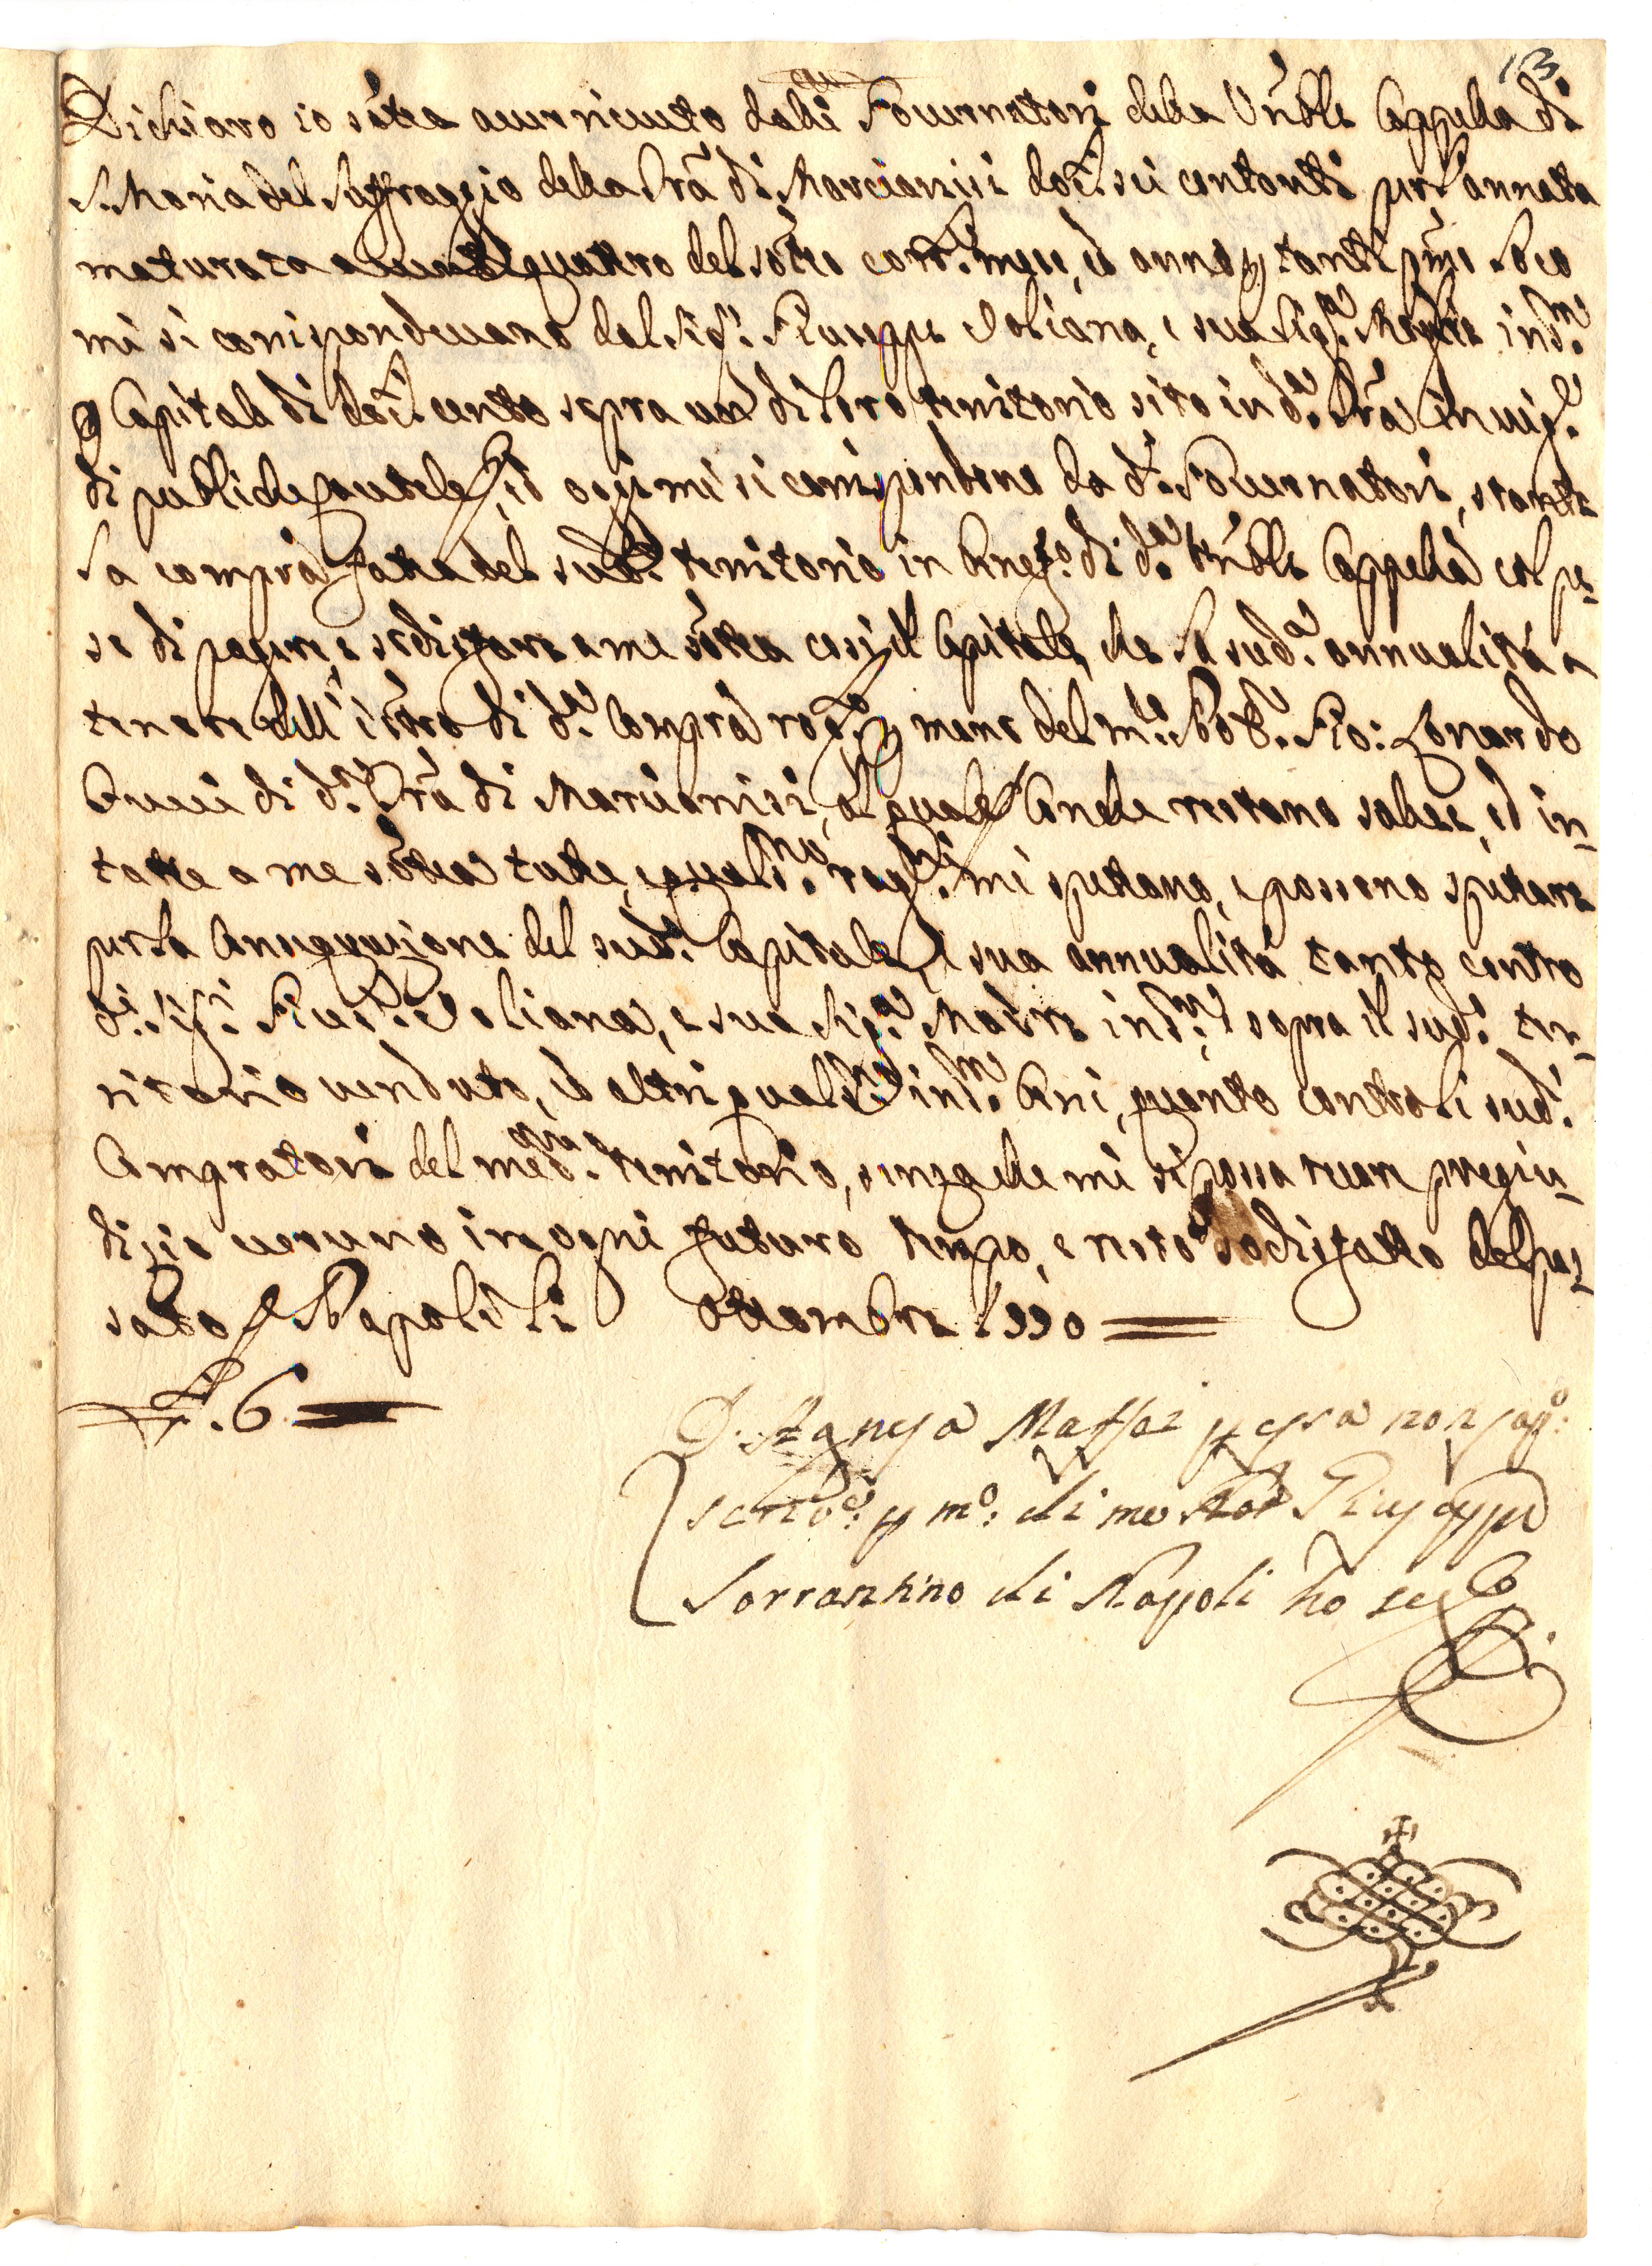 13
Dichiaro io sotta aver ricevuto dalli Governatori della Vnble Cappella di
S. Maria del Suffraggio della Trã di Marcianisi doc.i sei contanti per l'annata
maturata a venti quattro del sotto corr.e mese, ed anno, q tanti p̃ma
mi si corrispondevano dal Sig.r Giuseppe Foliano, e sua Sig.ra Madre in s.m
q Capitale di doc.i cento sopra un di loro territorio sito in d.a Trã in vig.e
di publiche cautele, ed oggi mi si corrispondono da d.i Governatori, stante
la compra fatta del sud.o territorio in benef.o di d.a Vnble Cappella col pe-
so di pagare, e sodisfare a me sotta così il Capitale, che la sud.a annualità a
tenore dell' istro di d.a Compra rog.o q mano del m.co Not.r Gio: Lonardo
di d.a Trã di Marcianisi, al quale anche restano salve, ed in-
tatte a me sotta tutte, e quals.no rag.ni mi spettano, e possono spettare
per la Conseguzione del sud.o Capitale, e sua annualità tanto contro
d.i Sig.i Gius.e Foliano, e sua Sig.ra Madre in s.m, e sopra il sud.o ter-
ritorio venduto, ed altri quals.no in s.m beni, quanto contro li sud.i
Compratori del med.mo territorio, senza che mi si possa recare pregiu-
dizio veruno in ogni futuro tempo, e resto sodisfatto del pas-
sato Napoli li Ottombre 1770
D. 6
D. Agnesa Maffei q essa non sap.o:
scriv.e: q m.o: di me Not Giuseppe
Sorrentino di Napoli ho seg.to